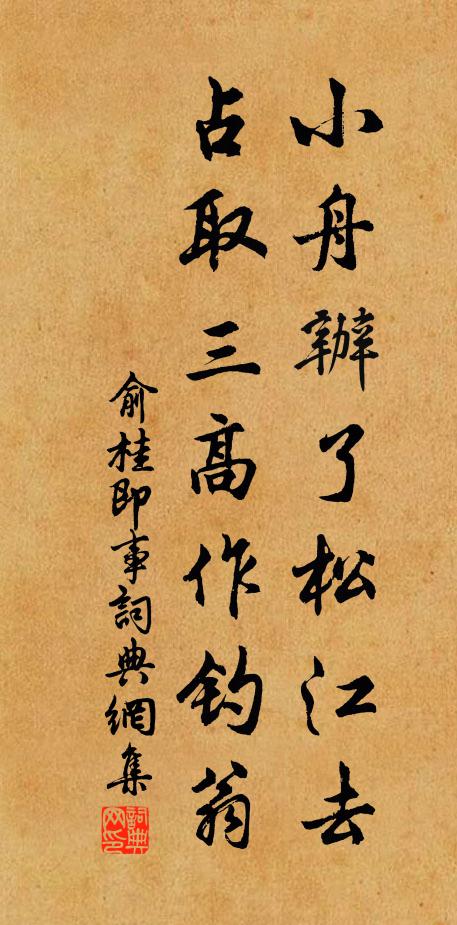 小舟辦了松江去
占取三高作釣翁
俞桂即事詞典網集
詞典网印